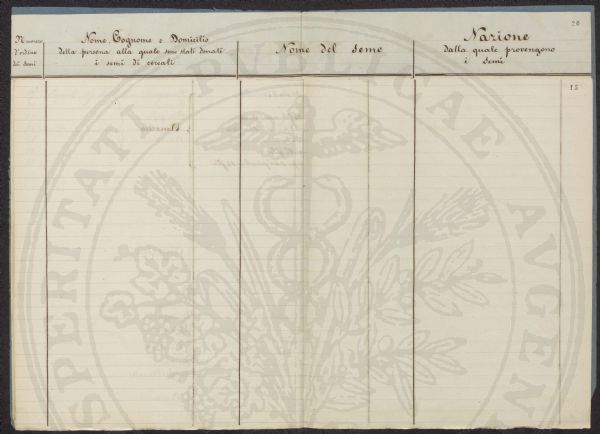 20
Numero
d'ordine
dei semi
Nome, Cognome e Domicilio
della persona alla quale sono stati donati
i semi di cereali
Nome del seme
Nazione
dalla quale provengono
i semi
15
PROSPERITATI PUBLICAE AUGENDAE